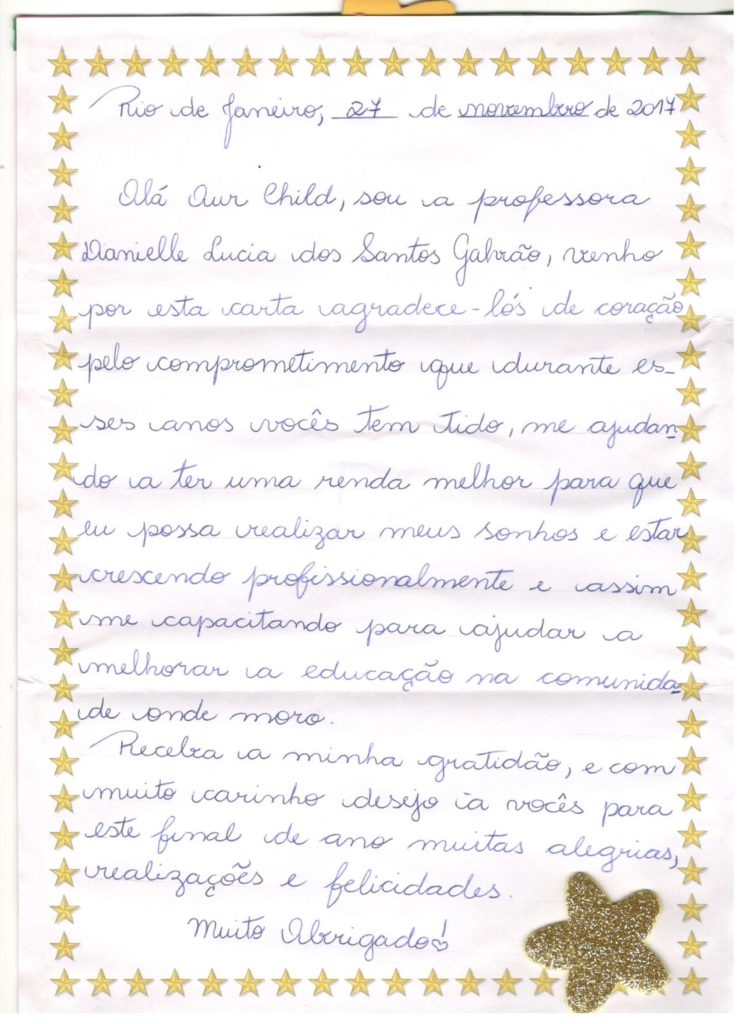 Rio de Janeiro, 27 de novembro de 2017
Olá Our Child, sou a professora
Danielle Lucia dos Santos Galvão, venho
por esta carta agradece-lós de coração
pelo comprometimento que durante es-
ses anos vocês tem tido, me ajudan-
do a ter uma renda melhor para que
eu possa realizar meus sonhos e estar
crescendo profissionalmente e assim
me capacitando para ajudar a
melhorar a educação na comunida-
de onde moro.
Receba a minha gratidão, e com
muito carinho desejo à vocês para
este final de ano muitas alegrias,
realizações e felicidades.
Muito Obrigado!